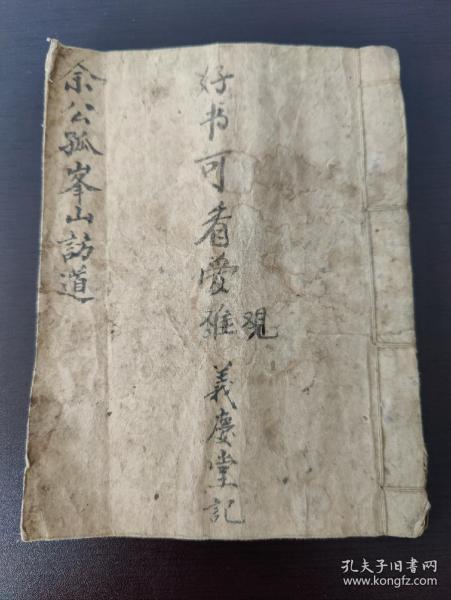 好书可看爱雅观
義慶堂記
余公孤峯山訪道
孔夫子旧书网
www.kongfz.com